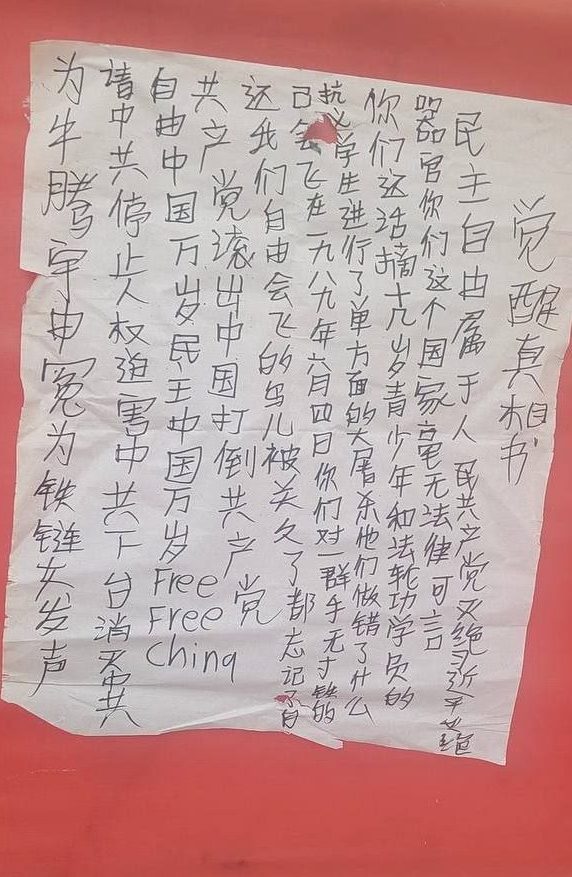 觉醒真相书
民主自由属于人民共产党灭绝习近平灭绝
器官你们这个国家毫无法律可言
你们这活摘十几岁青少年和法轮功学员的
抗议学生进行了单方面的大屠杀他们做错了什么
己会飞在一九八九年六月四日你们对一群手无寸铁的
这我们自由会飞的鸟儿被关久了都忘记了自
共产党滚出中国打倒共产党
自由中国万岁民主中国万岁Free Free China
请中共停止人权迫害中共下台消灭中共
为牛腾宇申冤为铁链女发声